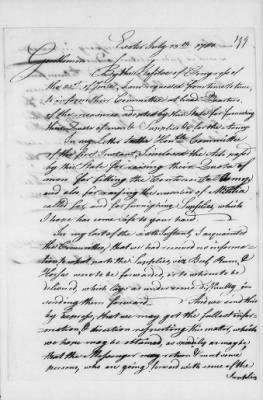 199
Exeter July 1780
Gentlemen
By the Resolve of Congress of
the of June, I am requested from time to time,
to inform their Committee at head Quarters,
of the measures adopted by this State for furnishing
their Quota of men & Supplies for the Army
In my letter to the Honble Committee
of the first Instant I inclosed the Acts pass'd
by this State for raising their Quota of
men for filling the Continental Army
and also for raising the number of Militia
called for, and for furnishing Supplies, which
I hope has come safe to your hand.
In my last of the Instant, I acquainted
the Committee, that we had received no informa-
tion to what parts the Supplies, viz Beef, Rum, &
Horses were to be forwarded, or to whom to be
deliver'd, which lays us under some difficulty in
sending them forward. And we send this
by Express, that we may get the fullest infor-
mation, & direction respecting this matter, which
we hope may be obtained, as speedily as may be,
that the Messenger may return & meet some
persons, who are going forward with some of the
Supplies